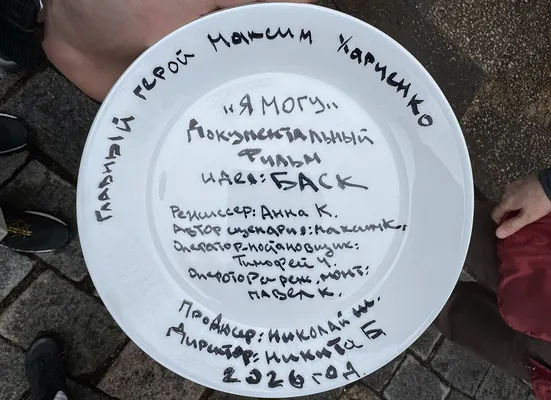 Главный герой Максим Хариенко
„Я МОГУ„
Документальный
Фильм
идея: БАСК
Режиссер: Анна К.
Автор сценария: Максим К.
Оператор-постановщик:
Тимофей Ч.
Оператор реж. монт:
Павел К.
Продюсер: Николай М.
Директор: Никита Б
2026 год.